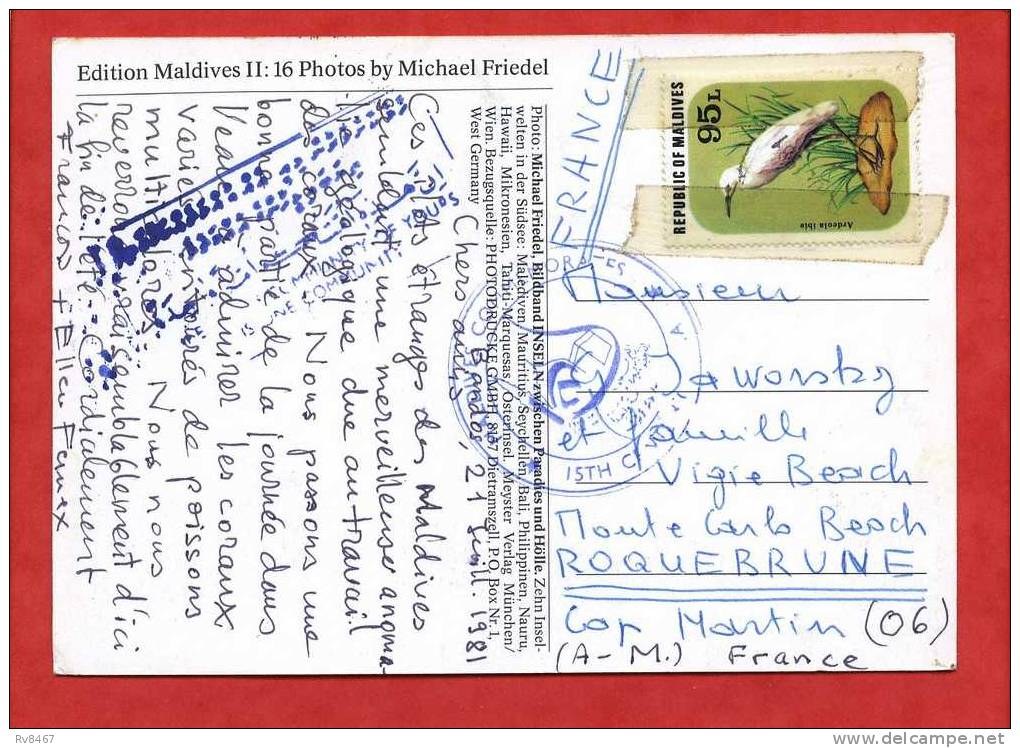 Edition Maldives II: 16 Photos by Michael Friedel
Photo: Michael Friedel, Bildband INSELN zwischen Paradies und Hölle, Zehn Insel-
welten in der Südsee: Malediven, Mauritius, Seychellen, Bali, Philippinen, Nauru,
Hawaii, Mikronesien, Tahiti-Marquesas, Osterinsel. Meyster Verlag München/
Wien. Bezugsquelle: PHOTODRUCKE GMBH, 8157 Dietramszell, P.O. Box Nr. 1,
West Germany
Bandos, 21 juill. 1981
Chers amis
Ces îlots étranges des Maldives
simulant une merveilleuse énigma-
géologique due au travail
des coraux. Nous passons une
bonne partie de la journée dans
l'eau à admirer les coraux
variés entourés de poissons
multicolores. Nous nous
reverrons vraisemblablement d'ici
la fin de l'été. Cordialement
Francis + Ellen Fennex
FRANCE
REPUBLIC OF MALDIVES
95L
Ardeola ibis
15TH C
Monsieur
Jaworsky
et famille
Vigie Beach
Monte Carlo Beach
ROQUEBRUNE
Cap Martin (06)
(A-M.) France
Rv8467
www.delcampe.net